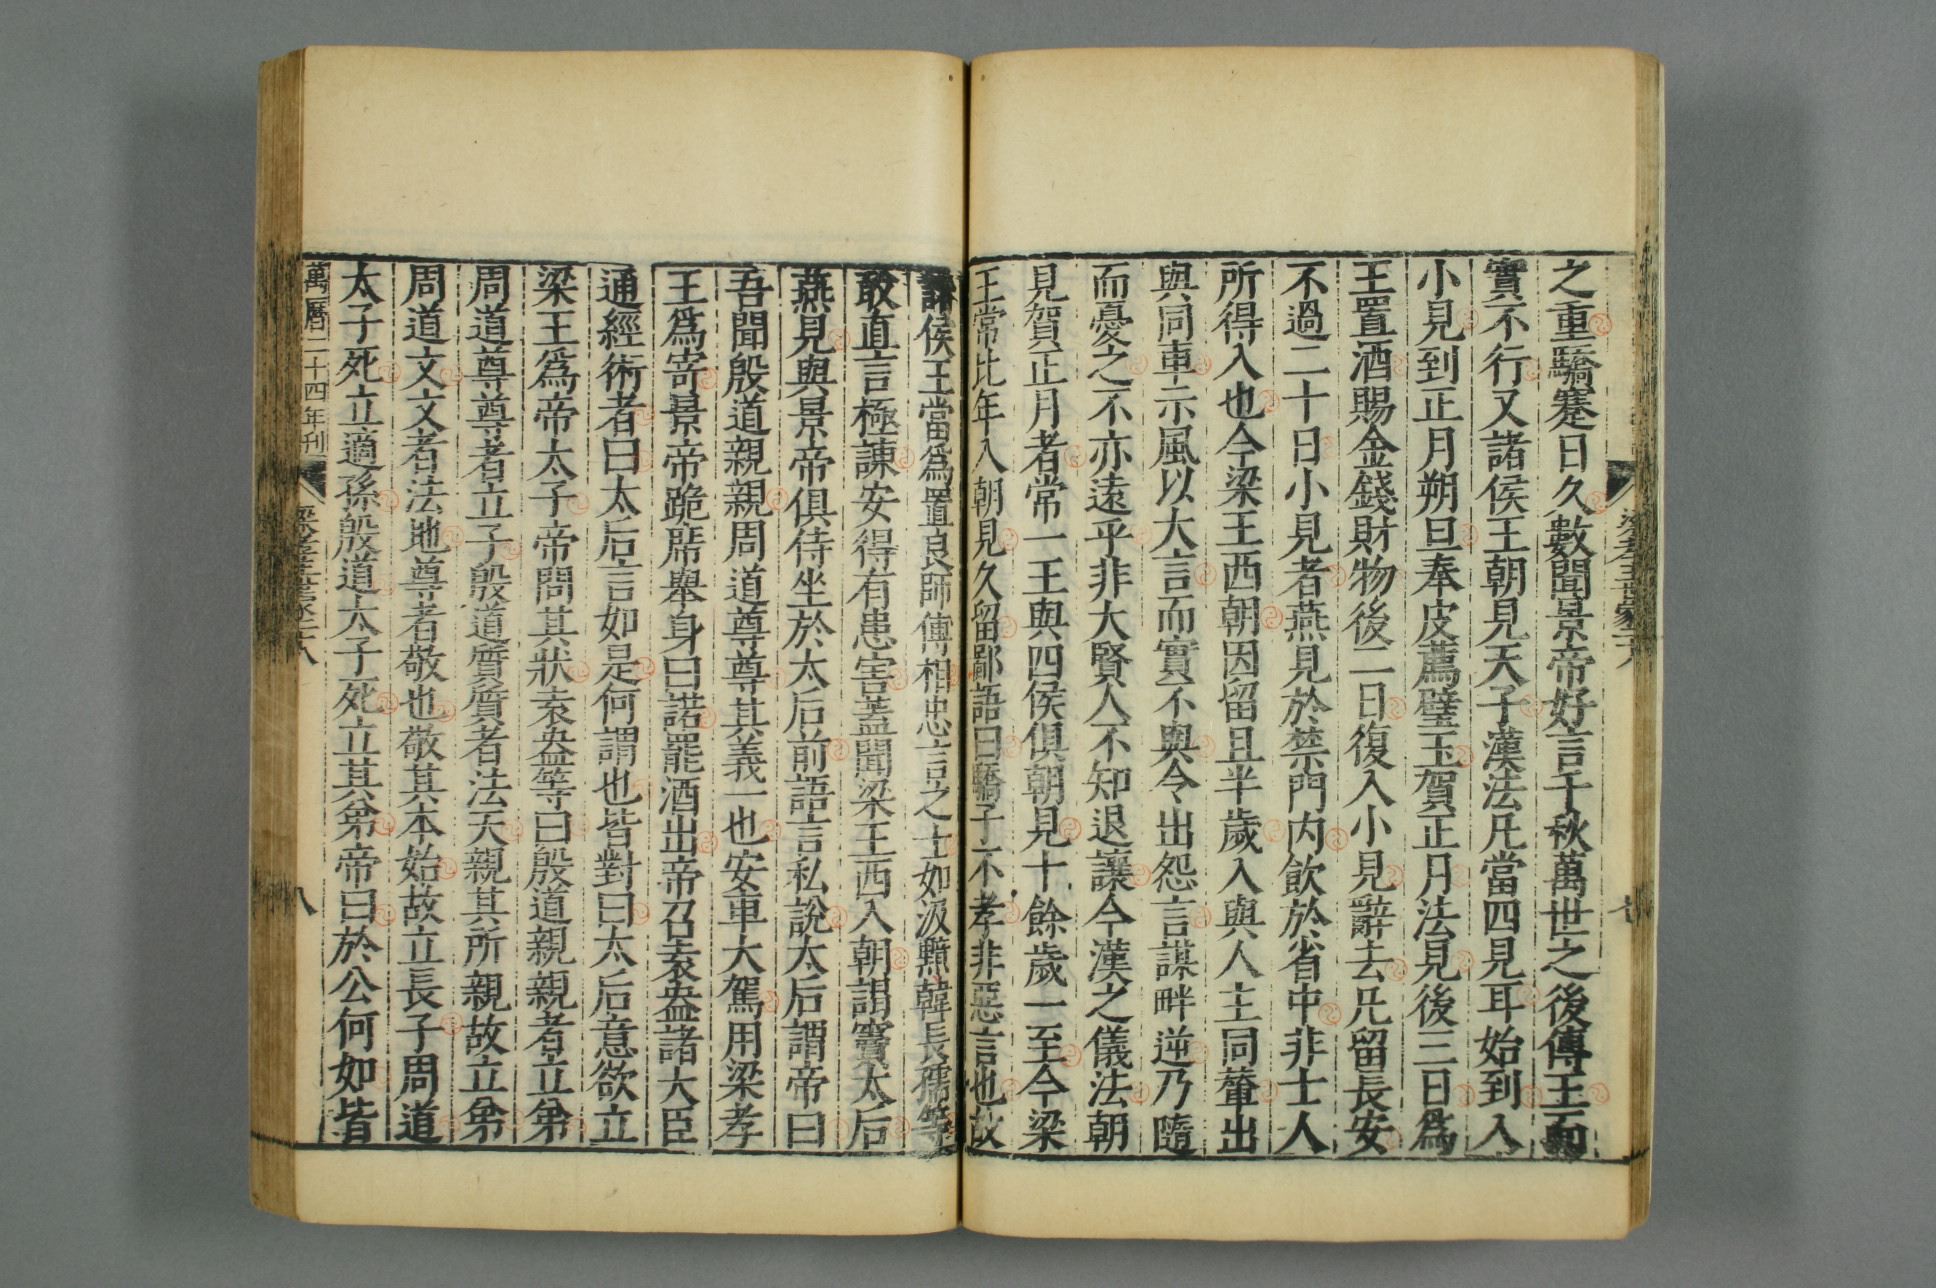 之重驕蹇日久數聞景帝好言千秋萬世之後傳王而
實不行又諸侯王朝見天子漢法凡當四見耳始到入
小見到正月朔旦奉皮薦璧玉賀正月法見後三日爲
王置酒賜金錢財物後二日復入小見辭去凡留長安
不過二十日小見者燕見於禁門內飲於省中非士人
所得入也今梁王西朝因留且半歲入與人主同輦出
與同車示風以大言而實不與令出怨言謀畔逆乃隨
而憂之不亦遠乎非大賢人不知退讓今漢之儀法朝
見賀正月者常一王與四侯俱朝見十餘歲一至今梁
王常比年入朝見久留鄙語曰驕子不孝非惡言也故
諸侯王當爲置良師傅相忠言之士如汲黯韓長孺等
敢直言極諫安得有患害蓋聞梁王西入朝謁竇太后
燕見與景帝俱侍坐於太后前語言私說太后謂帝曰
吾聞殷道親親周道尊尊其義一也安車大駕用梁孝
王爲寄景帝跪席舉身曰諾罷酒出帝召袁盎諸大臣
通經術者曰太后言如是何謂也皆對曰太后意欲立
梁王爲帝太子帝問其狀袁盎等曰殷道親親者立弟
周道尊尊者立子殷道質質者法天親其所親故立弟
周道文文者法地尊者敬也敬其本始故立長子周道
太子死立適孫殷道太子死立其弟帝曰於公何如皆
萬曆二十四年刊
八